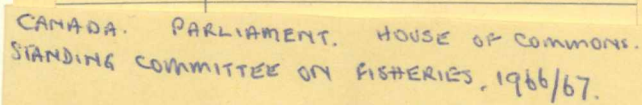 CANADA. PARLIAMENT. HOUSE OF COMMONS.
STANDING COMMITTEE ON FISHERIES, 1966/67.